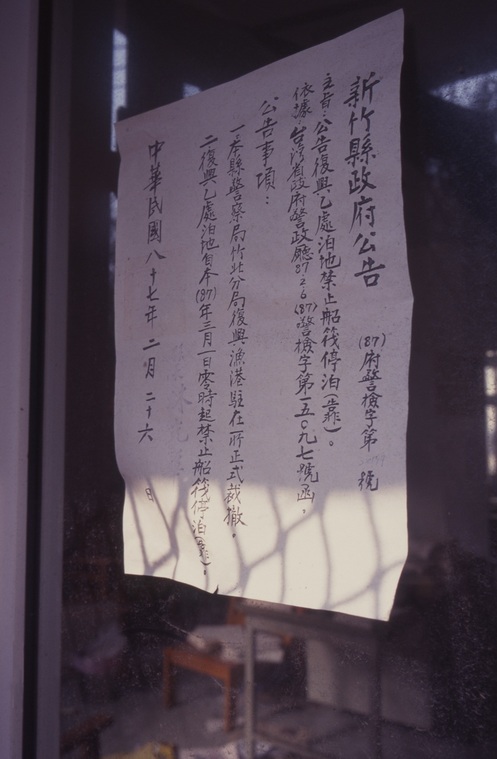 新竹縣政府公告
(87)府警檢字第 號
主旨：公告復興乙處泊地禁止船筏停泊(靠)。
依據：台灣省政府警政廳87 2 6(87)警檢字第一五〇九七號函。
公告事項：
一、本縣警察局竹北分局復興漁港駐在所正式裁撤。
二、復興乙處泊地自本(87)年三月一日零時起禁止船筏停泊(靠)。
中華民國八十七年二月二十六日